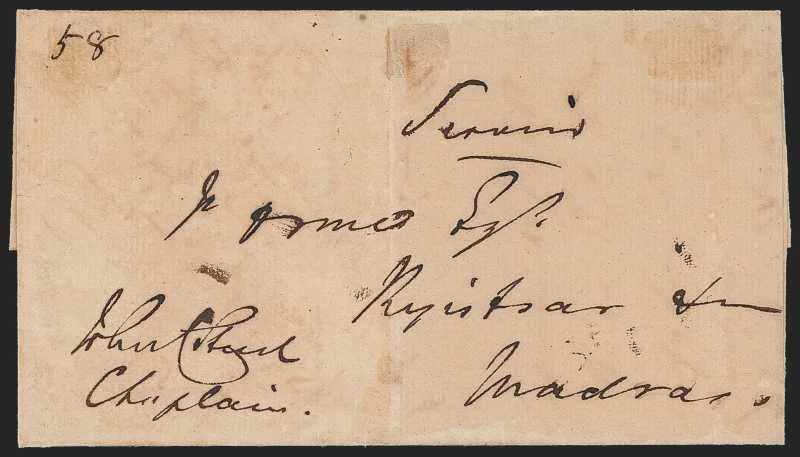 58
Service
Orme Esqr.
Registrar &c
Madras.
John
Chaplain.